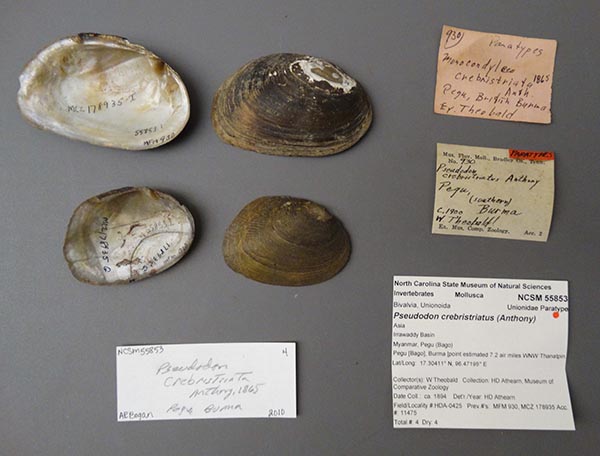 MCZ 178935 I
55853
930
930)
Paratypes
Monocondylaea
crebristriata 1865
Anth.
Pegu, British Burma
Ex. Theobald
PARATYPES
Mus. Phyr. Moll., Bradley Co., Tenn.
No. 930
Pseudodon
crebristriatus Anthony
Pegu,
(southern)
Burma
C. 1900
W Theobald!
Ex. Mus. Comp. Zoology. Acc. 2
North Carolina State Museum of Natural Sciences
Invertebrates Mollusca NCSM 55853
Bivalvia, Unionoida Unionidae Paratype
Pseudodon crebristriatus (Anthony)
Asia
Irrawaddy Basin
Myanmar, Pegu (Bago)
Pegu [Bago], Burma [point estimated 7.2 air miles WNW Thanatpin
Lat/Long: 17.30411° N, 96.47195° E
Collector(s): W Theobald Collection: HD Athearn, Museum of
Comparative Zoology
Date Coll.: ca. 1894 Det'r./Year: HD Athearn
Field/Locality #:HDA-0425 Prev.#'s: MFM 930, MCZ 178935 Acc.
#: 11475
Total #: 4 Dry: 4
NCSM 55853 4
Pseudodon
crebristriata
Anthony, 1865
Pegu Burma
AE Bogan 2010